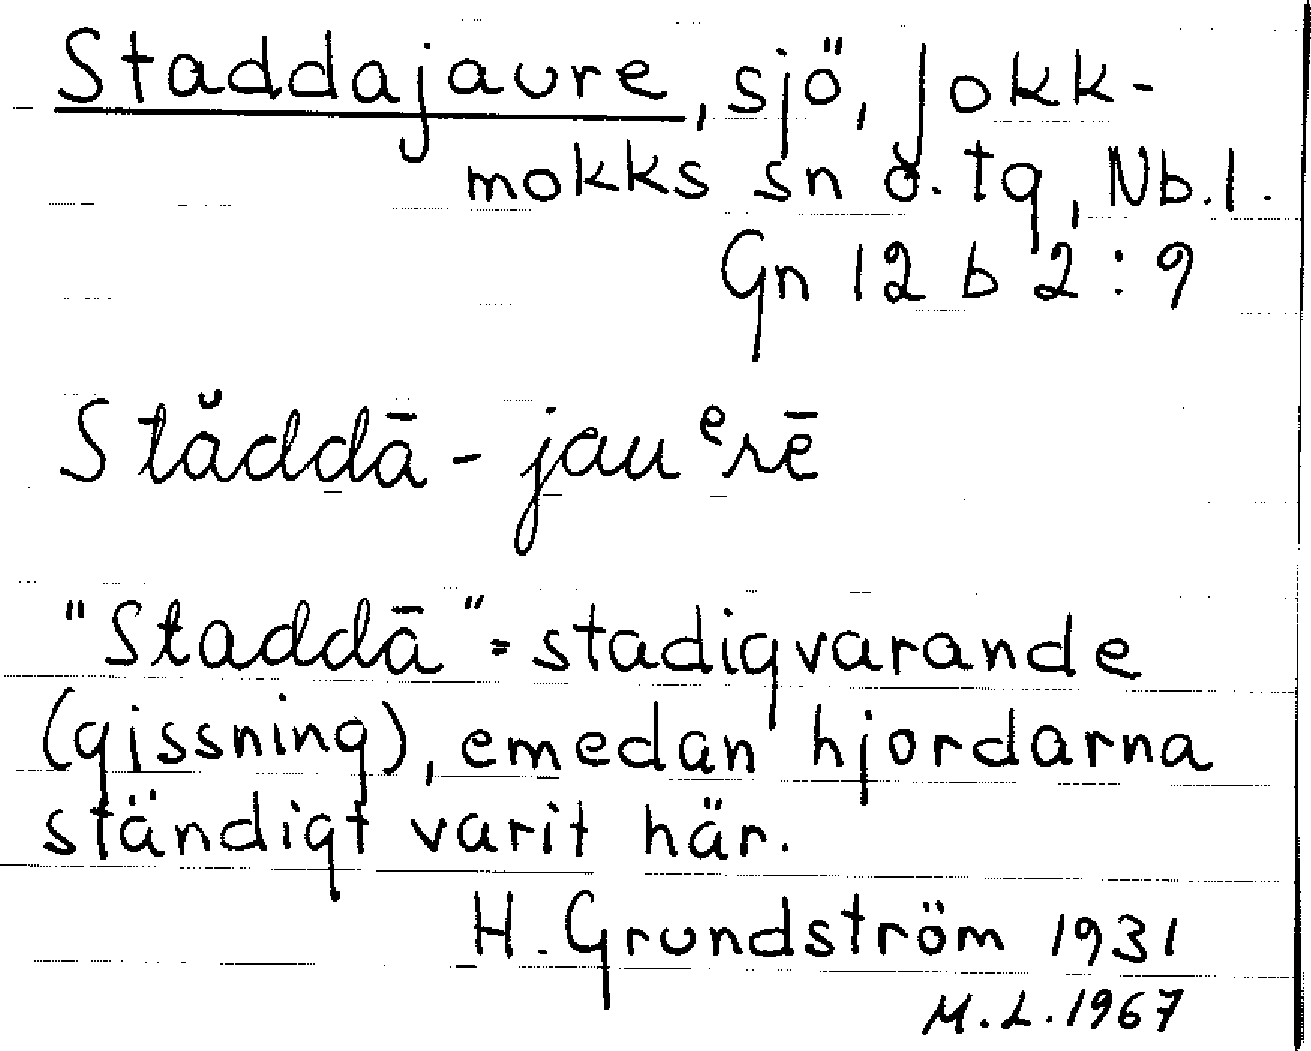 Staddajaure, sjö, Jokk-
mokks sn o. tg, Nb. l.
Gn 12 b 2 : 9
Stăddā - jauᵉrē
"Staddā" = stadigvarande
(gissning), emedan hjordarna
ständigt varit här.
H. Grundström 1931
M. L. 1967